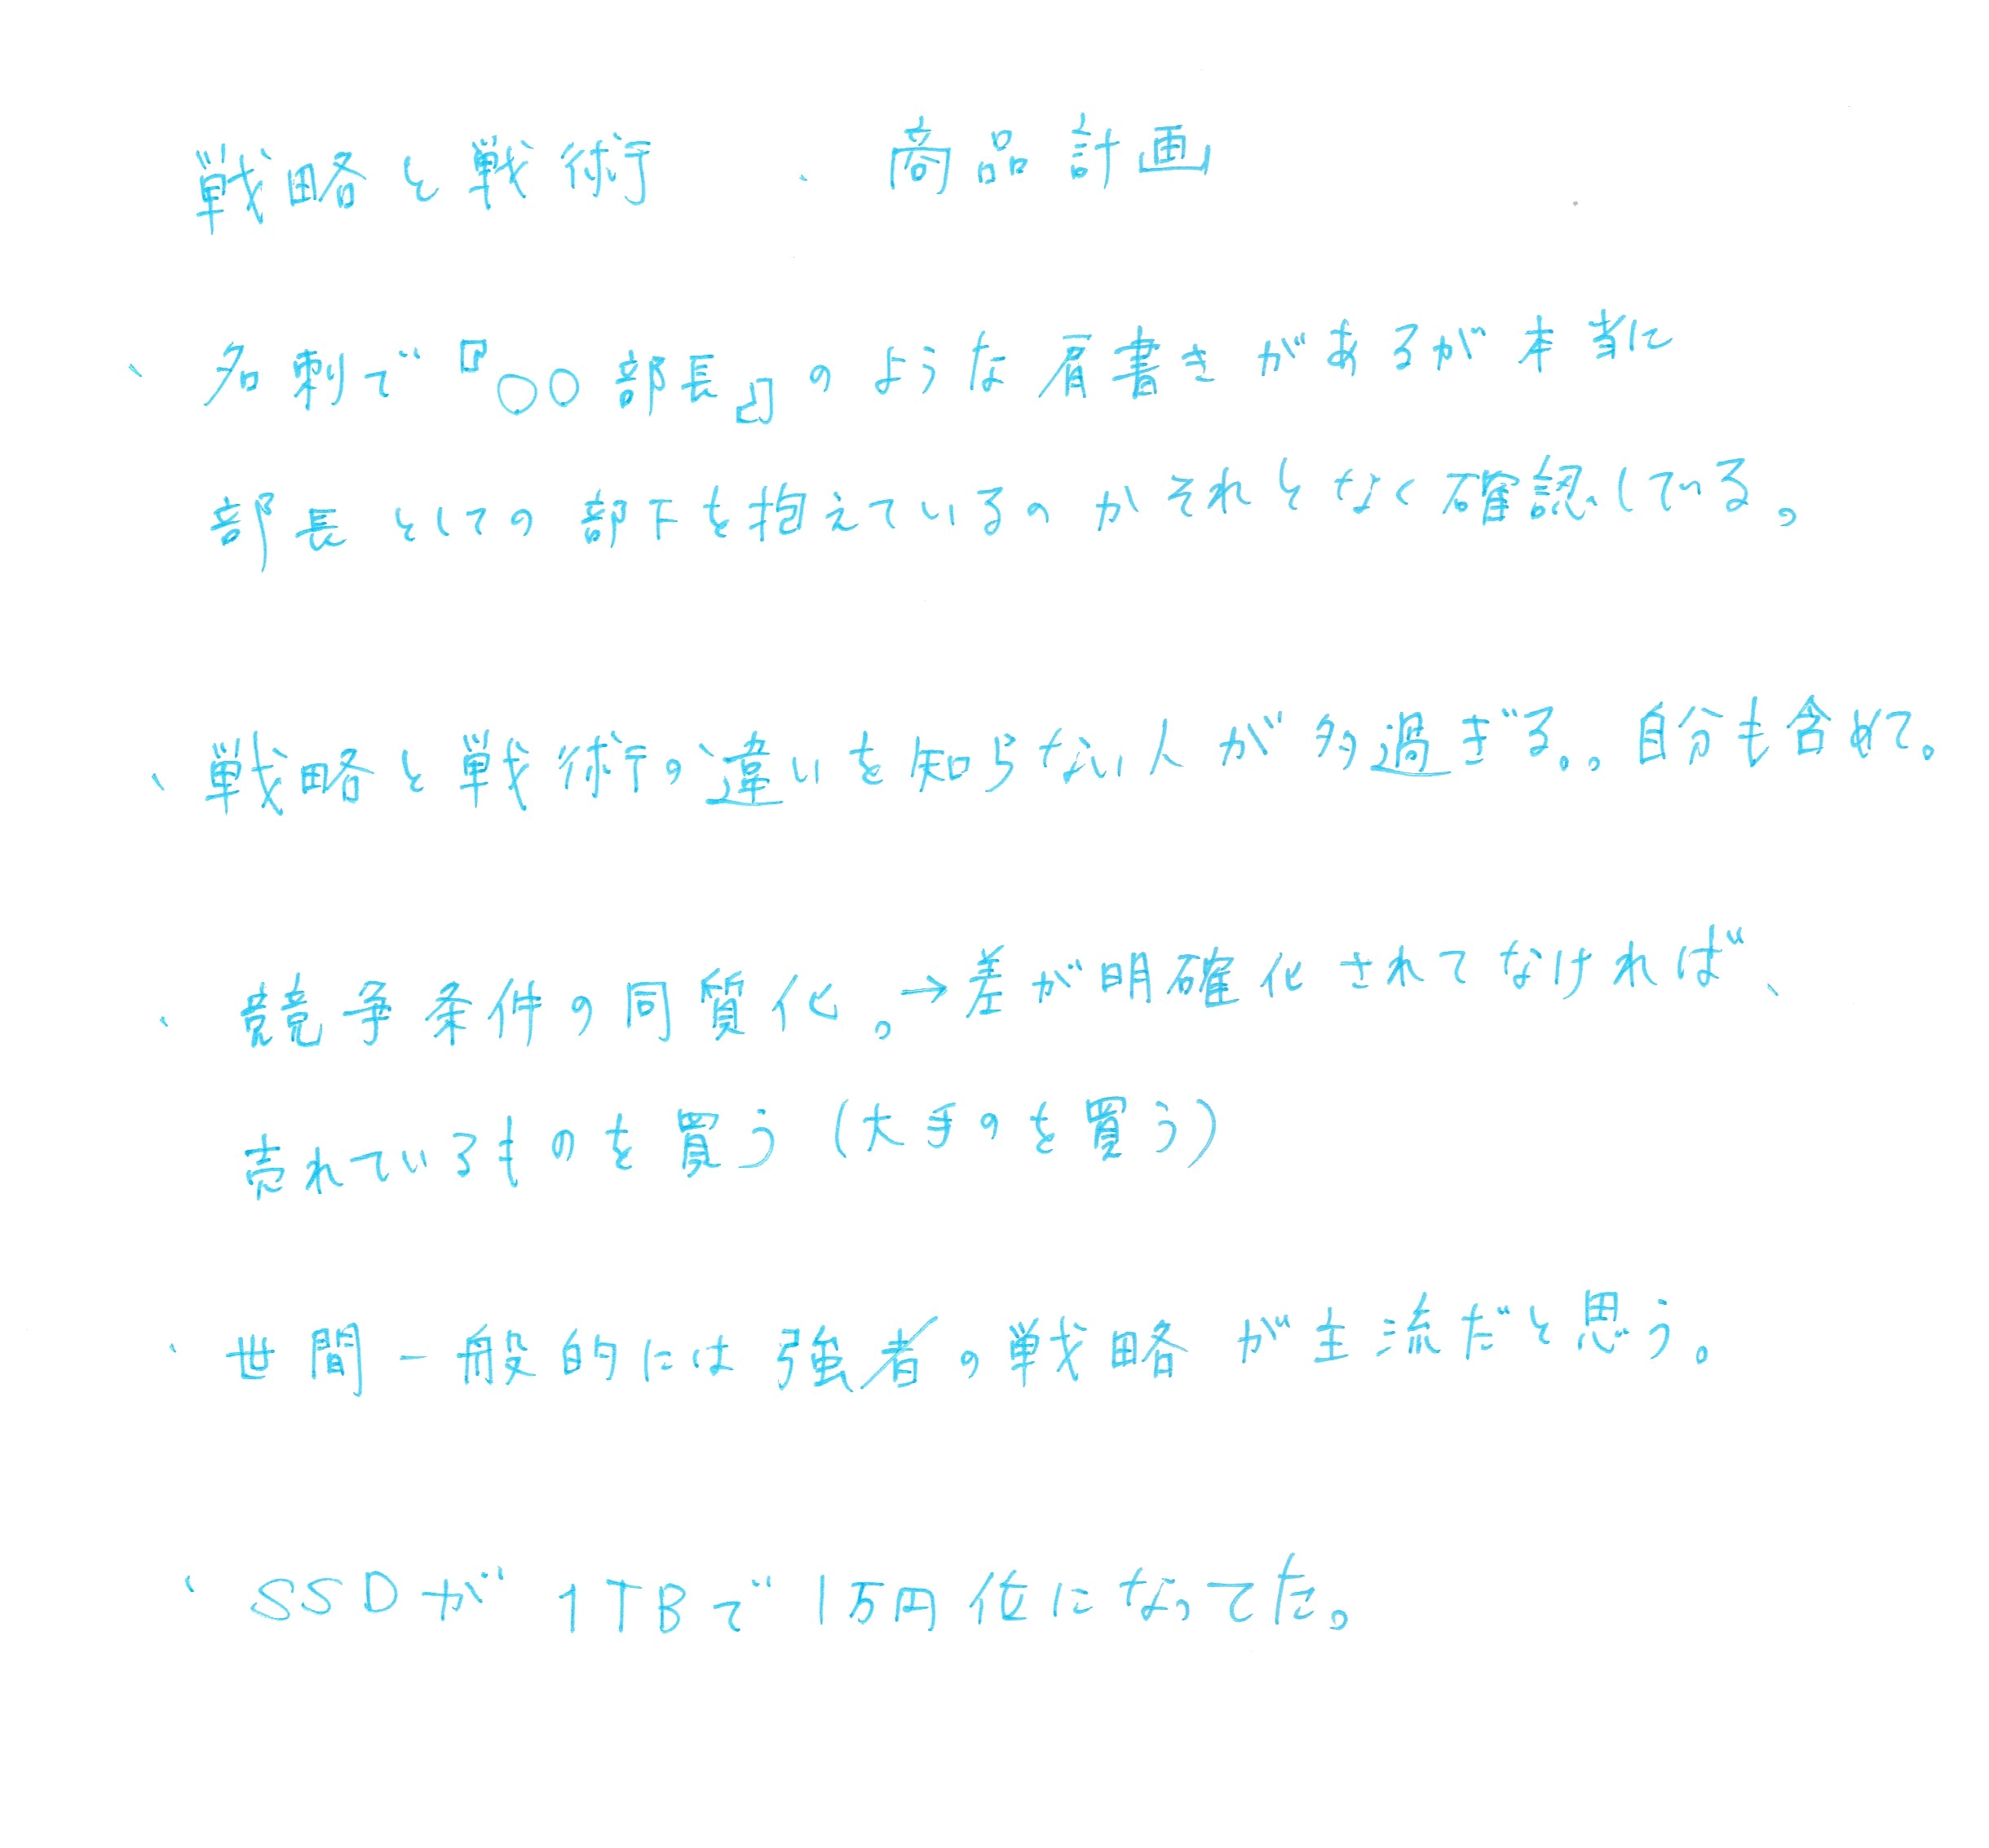 戦略と戦術　、商品計画
、名刺で『〇〇部長』のような肩書きがあるが本当に
部長としての部下を抱えているのかそれとなく確認している。
、戦略と戦術の違いを知らない人が多過ぎる。。自分も含めて。
、競争条件の同質化。→差が明確化されてなければ、
売れているものを買う（大手のを買う）
、世間一般的には強者の戦略が主流だと思う。
、SSDが1TBで1万円位になってた。